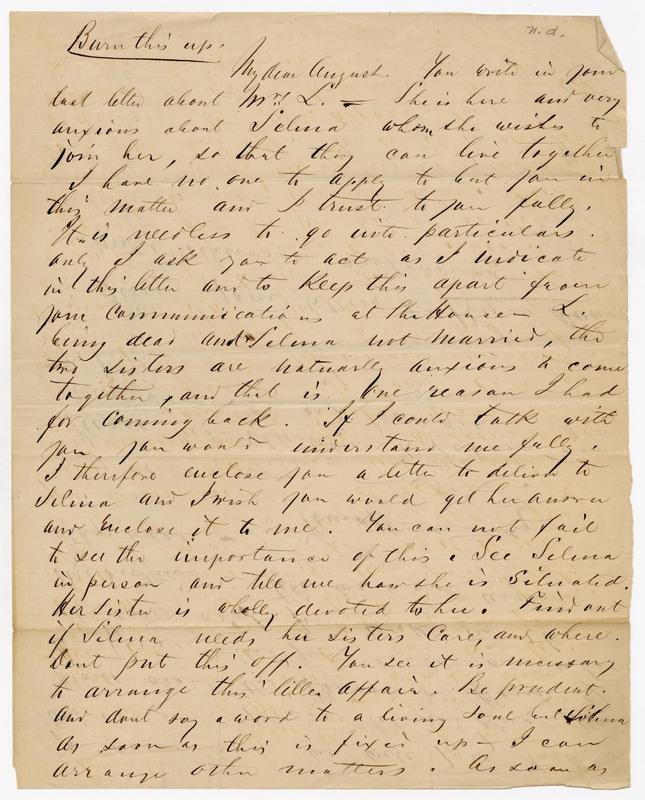 n.d.
Burn this up.
My dear August. You write in your
last letter about Mrs L. — She is here and very
anxious about Selina whom she wishes to
join her, so that they can live together
I have no one to apply to but you in
this matter and I trust to you fully.
It is needless to go into particulars.
only I ask you to act as I indicate
in this letter and to keep this apart from
your communications at the House — L.
being dead and Selina not married, the
two sisters are naturally anxious to come
together, and that is one reason I had
for coming back. If I could talk with
you you would understand me fully.
I therefore enclose you a letter to deliver to
Selina and I wish you would get her answer
and enclose it to me. You can not fail
to see the importance of this. See Selina
in person and tell me how she is situated.
Her sister is wholly devoted to her. Find out
if Selina needs her sisters care, and where.
Dont put this off. You see it is necessary
to arrange this little affair. Be prudent.
and dont say a word to a living soul but Selina
As soon as this is fixed up — I can
arrange other matters. As soon as